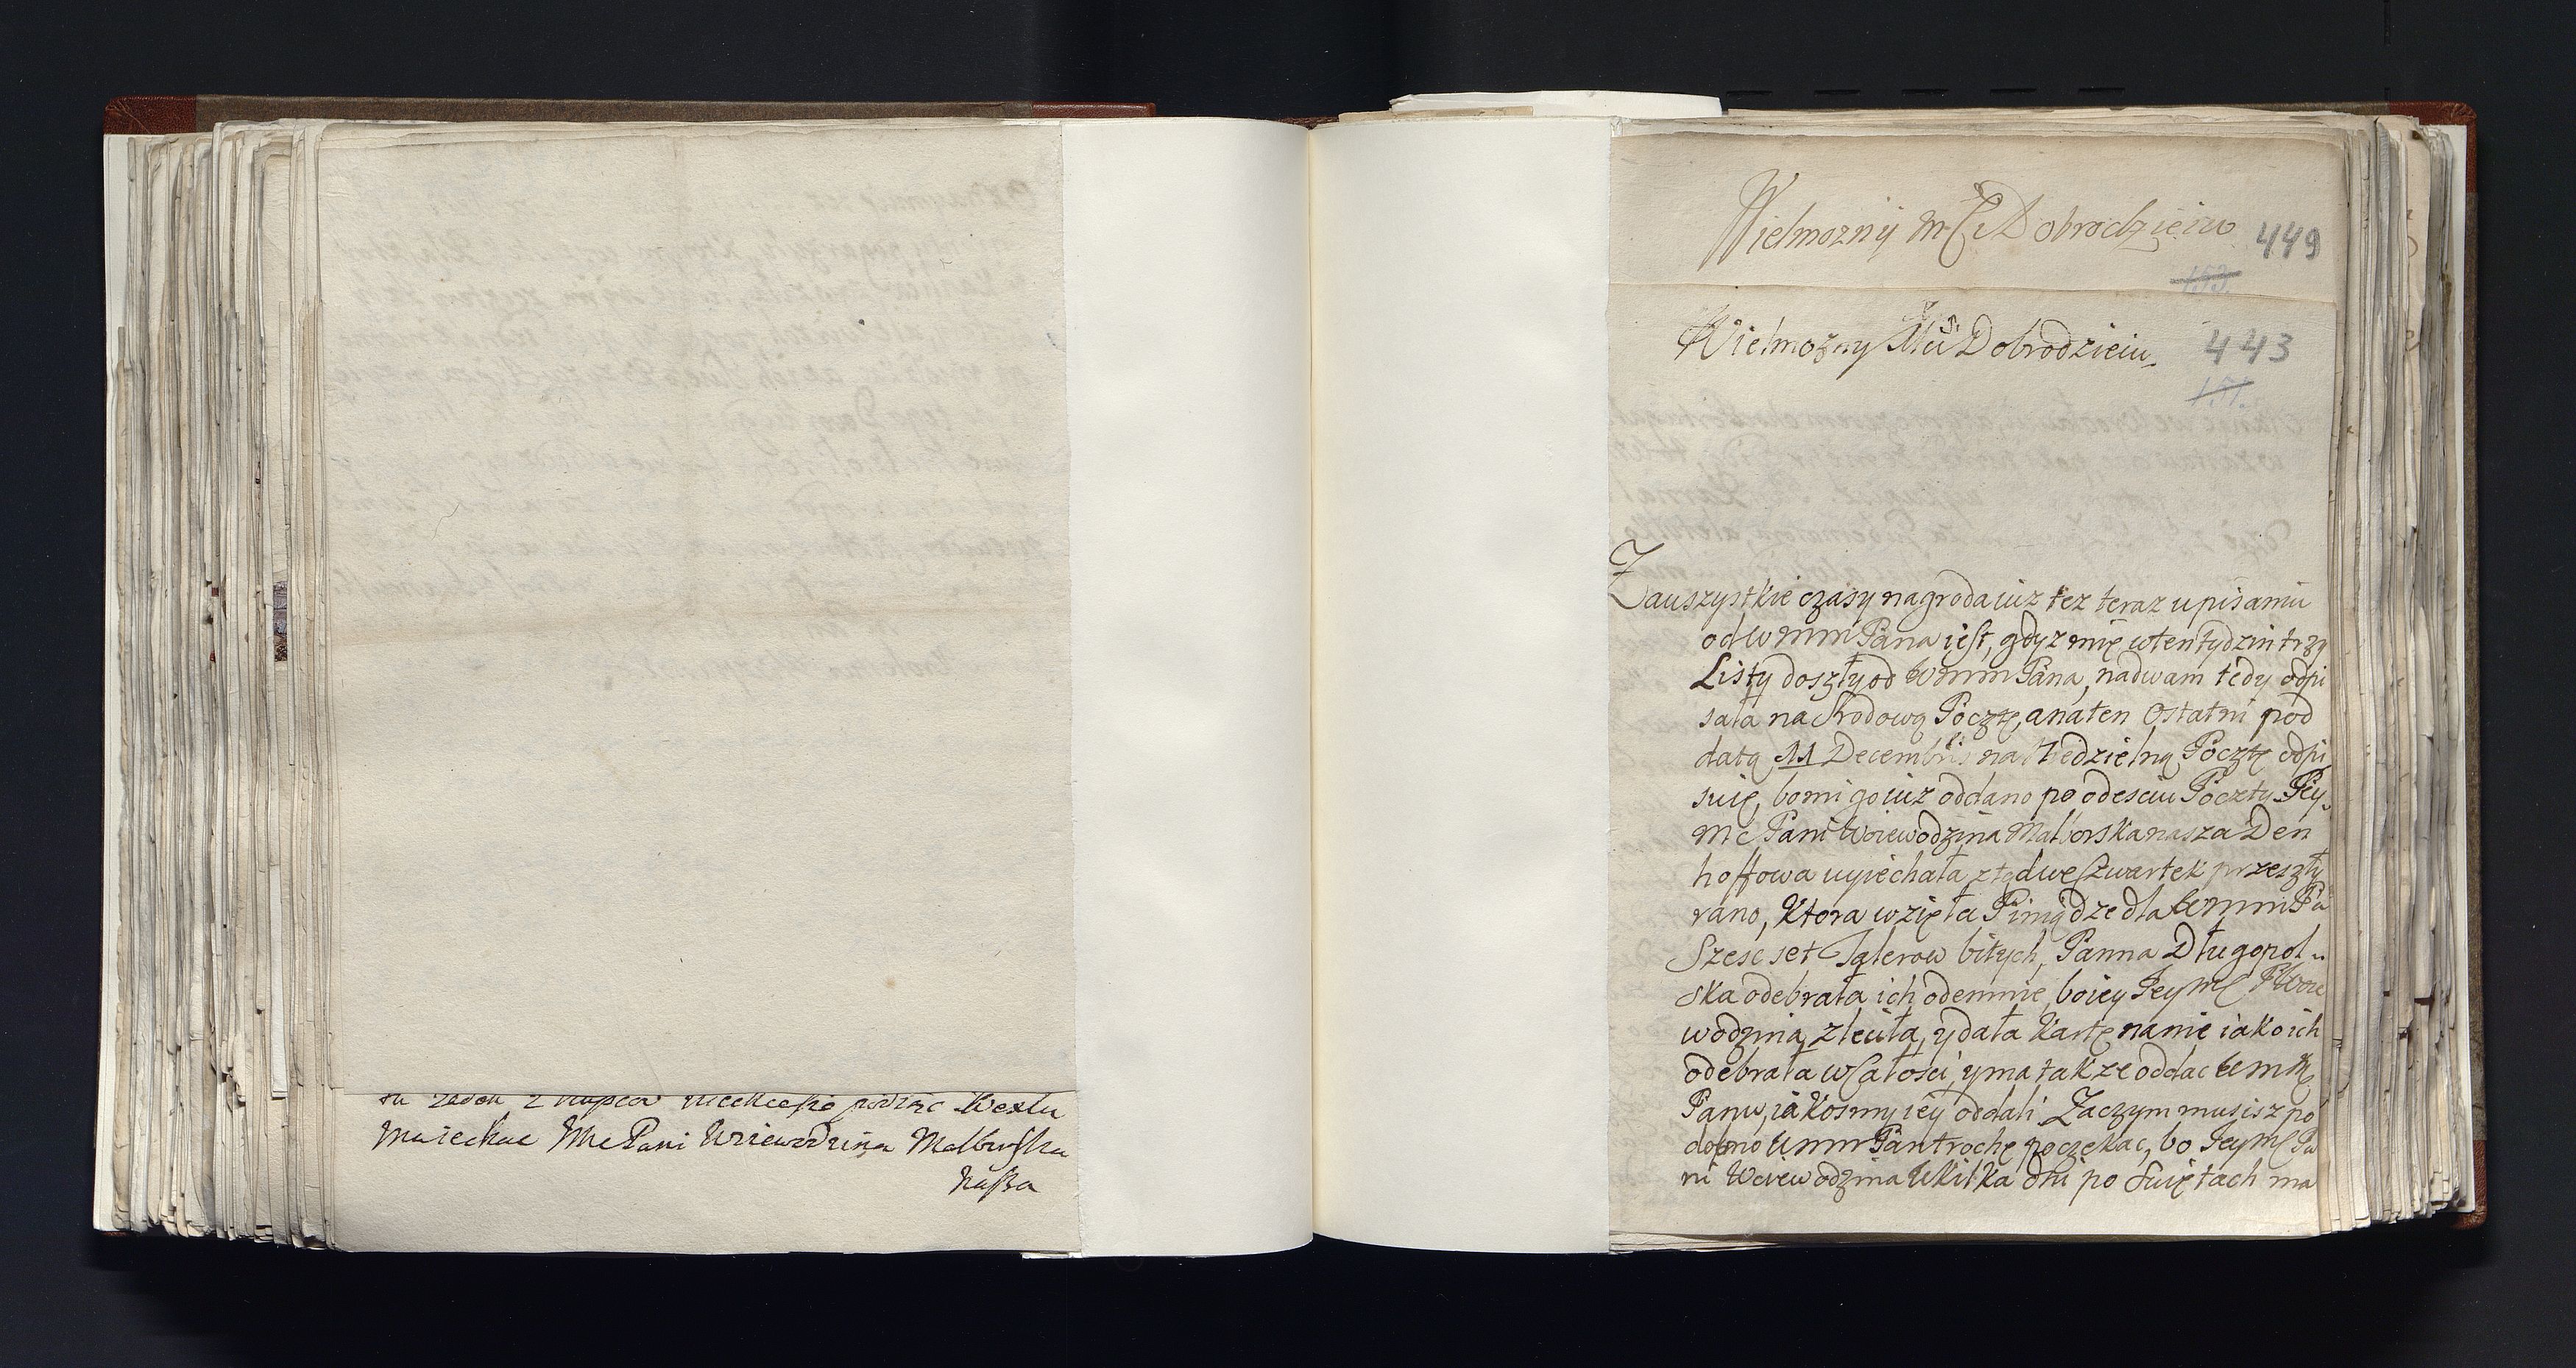 tu żaden z kupców nie chciał podjąć Wexlu
Ma iechac Mc Pani Woiewodzina Malborska
naßa
Wielmozny Mſci Dobrodzieiu
449
Wielmozny Msci Dobrodzieiu
443
171.
Zauszystkie czasy nagroda iuz tez teraz u pisaniu
od W mm Pana iest, gdyz mię w ten tydzin trzy
Listy doszły od W mm Pana, nadwam tedy odpi
sała na Srodową Pocztę, a na ten Ostatni pod
datą 11 Decembris na Niedzielną Pocztę odpi
suię, bo mi go iuz oddano po odesciu Poczty Jey
Mc Pani Woiewodzina Malborska nasza Den
hoffowa uyiechała ztąd we Czwartek przeszły
rano, Ktora wzięła Piniądze dla W mm Pa
Szesc set Talerow bitych, Panna Długopol
ska odebrała ich odemnie, bo iey Jey Mc P Woie
wodzina zleciła, y dała Kartę na nie iako ich
odebrała w Całosci, y ma takze oddac W m M
Panu, iakosmy iey oddali. Zaczym musisz po
dobno W mm Pan trochę poczekac, bo Jey Mc Pa
ni Woiewodzina Wkilka dni po Swiętach ma